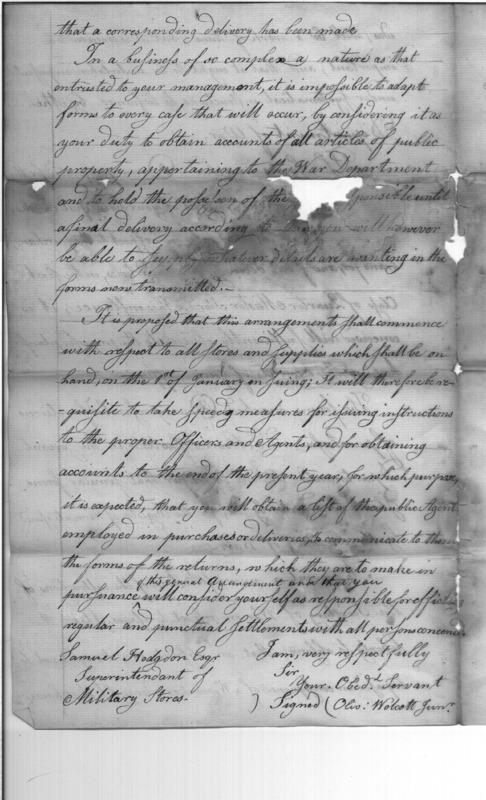 that a corresponding delivery has been made
In a business of so complex a nature as that
entrusted to your management, it is impossible to adapt
forms to every case that will occur, by considering it as
your duty to obtain accounts of all articles of public
property, appertaining to the War Department
and to hold the possessor of the sponsible until
a final delivery according to you will however
be able to whatever details are wanting in the
forms now transmitted.—
It is proposed that this arrangements shall commence
with respect to all stores and supplies which shall be on
hand, on the 1st of January en suing; It will therefore be re-
-quisite to take speedy measures for issuing instructions
to the proper Officers and Agents, and for obtaining
accounts to the end of the present year, for which purpose,
it is expected, that you will obtain a list of the public Agent
employed in purchases or deliveries, to communicate to them
the forms of the returns, which they are to make in
of this general arrangement and that you
pursuance will consider yourself as responsible for
regular and punctual settlements with all persons concerned
Samuel Hodgdon Esqr I am, very respectfully
Superintendant of Sir
Your Obedt. Servant
Military Stores- ) Signed ( Oliv: Wolcott Junr.